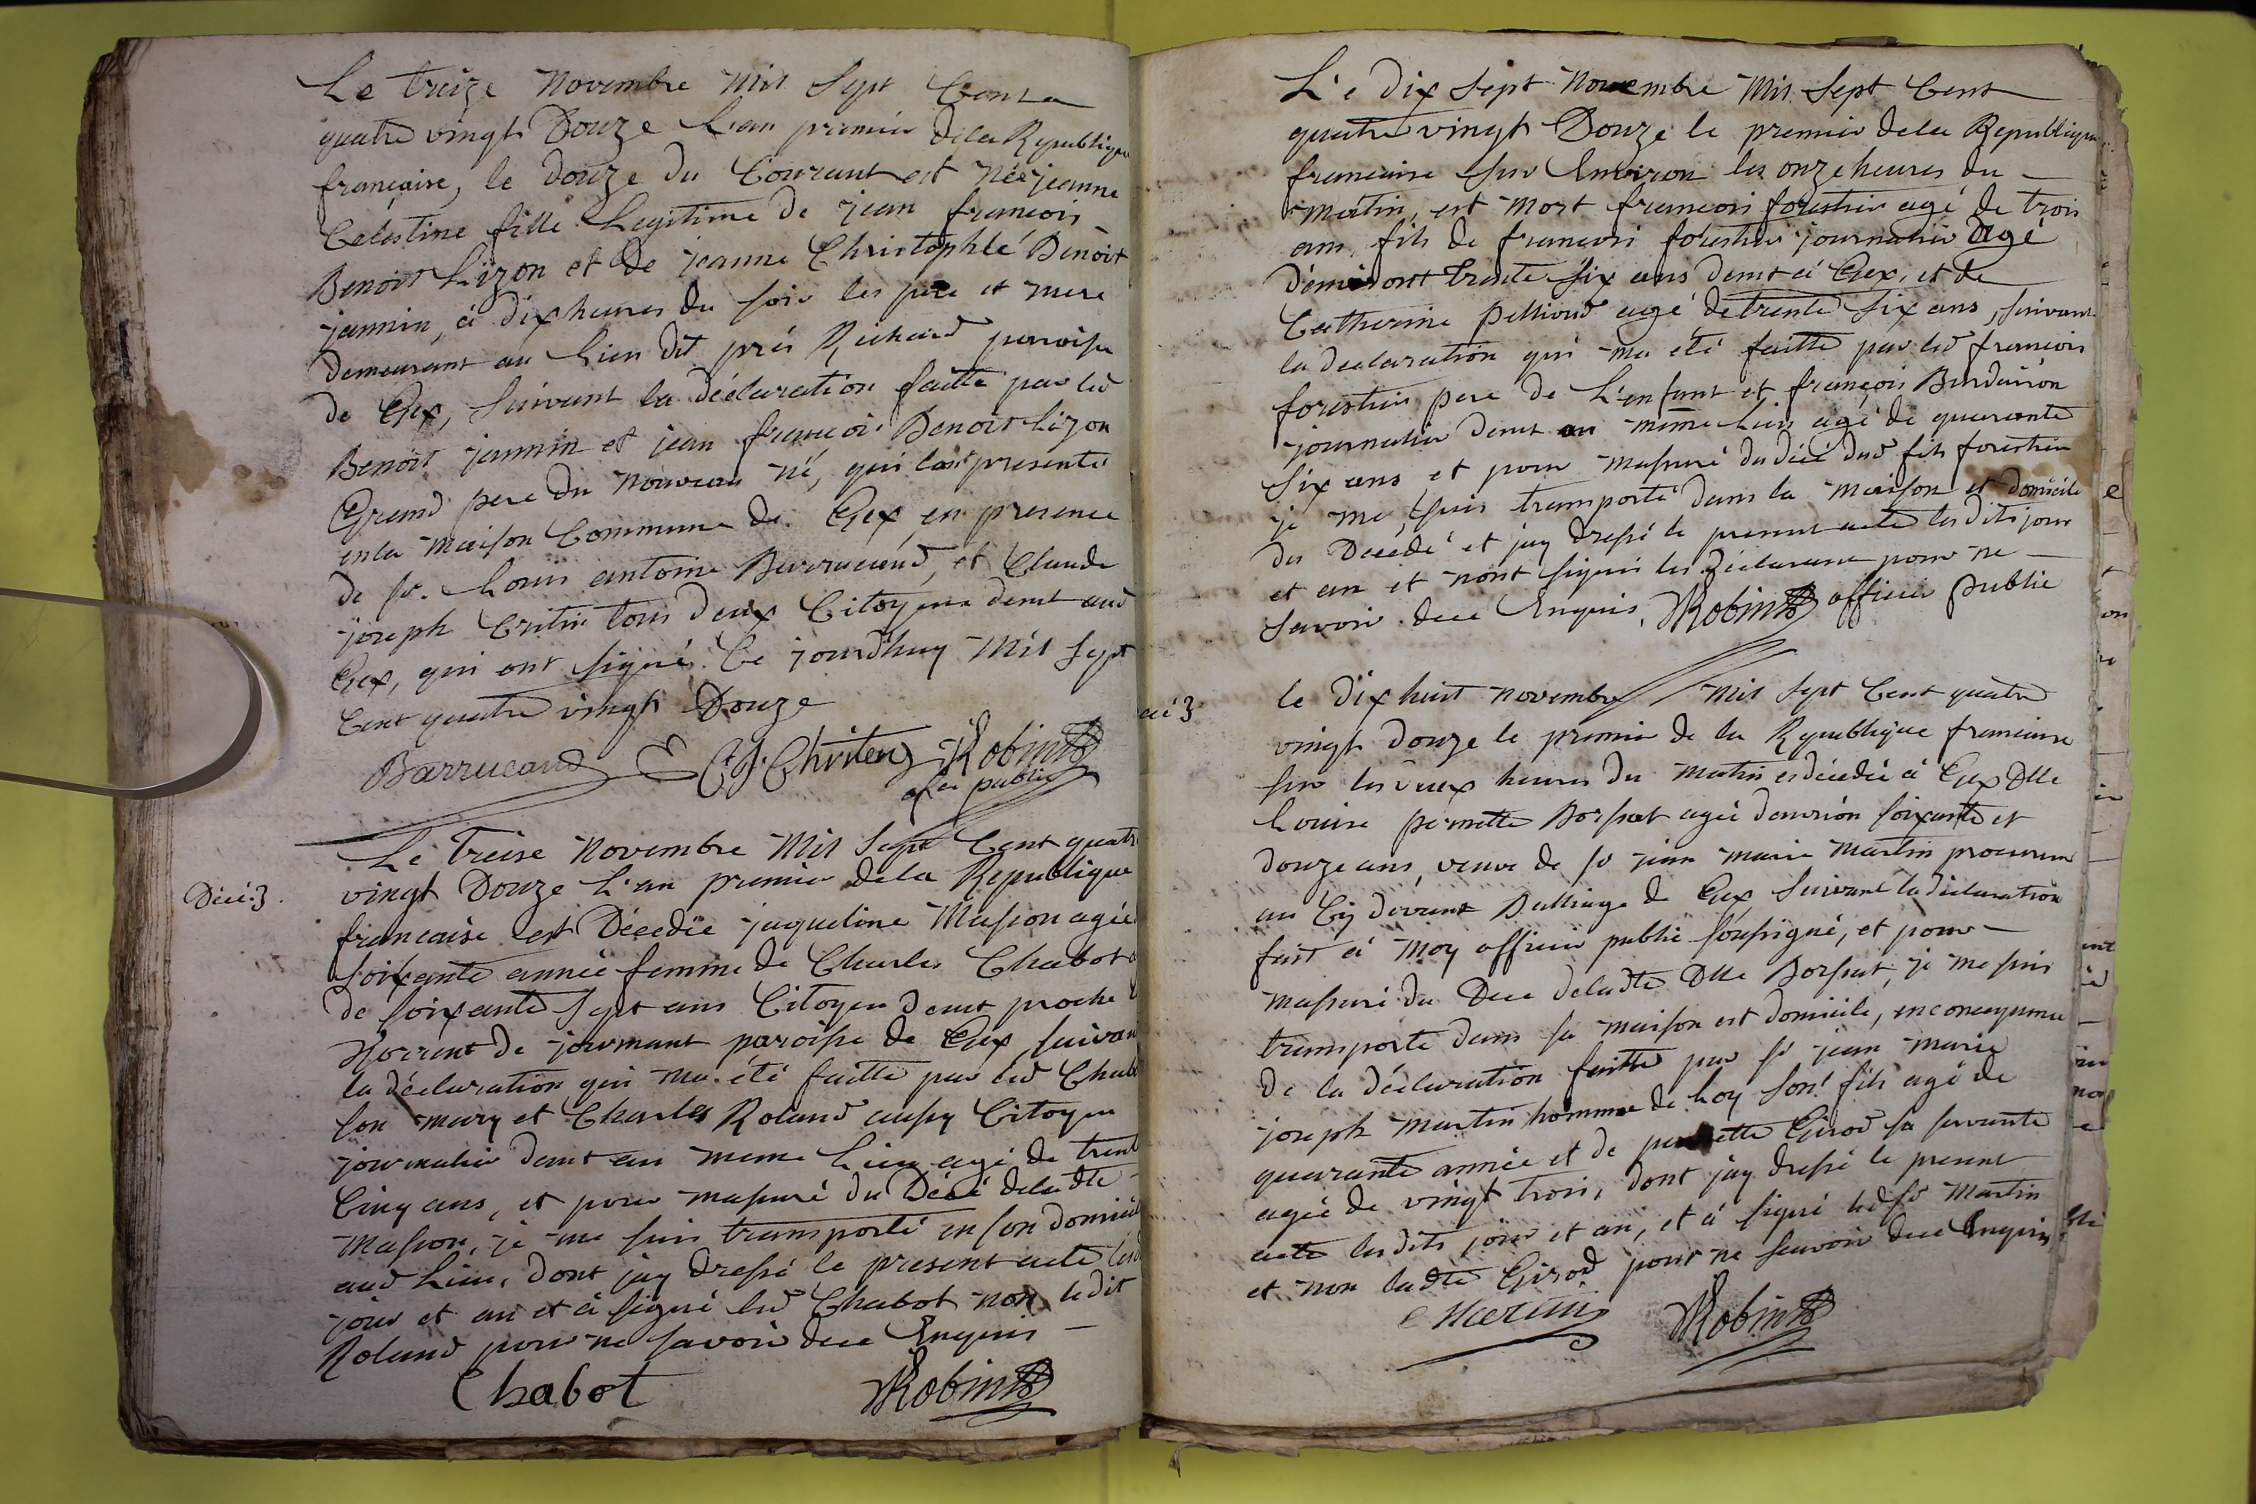 Le treize Novembre Mil Sept Cent
quatre vingt Douze L'an premier dela Republique
française, le douze du Courant est née jeanne
Celestine fille Legitime de jean francois
Benoit Lizon et de jeanne Christophle Benoit
jannin, à dix heures du soir les pere et mere
demeurant au Lieu dit prés Richard paroisse
de Gex, suivant la déclaration faitte par led
Benoit jannin et jean françois Benoit Lizon
Grand pere du nouveau né, qui l'ont presenté
en la maison Commune de Gex, en presence
de sr. Louis antoine Barrucand, et Claude
joseph tous deux Citoyens demt aud
Gex, qui ont signé. Ce jourdhuy Mil Sept
Cent quatre vingt Douze
Barrucand Robin
offer public
Décé. 3.
Le treise Novembre Mil Sept Cent quatre
vingt Douze L'an premier dela Republique
francaise est Décedée jaqueline Masson agée
soixante année femme de Charles Chabot
de soixante sept ans Citoyen demt proche
de paroisse de Gex, suivan
la déclaration qui ma été faitte par led Chab
son mary et Charles Roland aussy Citoyen
journalier demt au meme Lieu agé de trent
Cinq ans, et pour massuré du Décé deladte
Masson, je me suis transporté en son domicil
aud Lieu, dont jay dressé le present acte
jour et an et à signé led Chabot non ledit
Roland pour ne savoir dece Enquis
Chabot Robin
Le dix sept Novembre Mil Sept Cent
quatre vingt Douze le premier dela Republique
francaise sur Environ les onze heures du
matin, est mort francois forestier agé de trois
ans fils de francois forestier journalier agé
d'environt trente six ans demt à Gex, et de
Catherine agé de trente six ans, suivant
la declaration qui ma été faitte par led francois
forestier pere de L'enfant et françois
journalier demt au même Lieu agé de quarante
six ans et pour massuré du décé dud fils forestier
je me suis transporté dans la maison et domicile
du Decédé et jay dressé le present acte les dits jour
et an et n'ont signés les déclarans pour ne
savoir dece Enquis. Robin officier public
cé 3
le dix huit novembre Mil Sept Cent quatre
vingt douze le premier de la Republique francaise
sur les deux heures du matin es décedée à Gex Dlle
Louise pernette Borssat agée d'environ soixante et
douze ans, veuve de sr jean marie Martin procureur
au Cy devant Balliage de Gex suivant la déclaration
fait à Moy officier public soussigné, et pour
massuré du Dece deladte Dlle Borssat, je me suis
transporté dans sa maison est domicile, en consequence
de la déclaration faitte par sr jean marie
joseph Martin homme de Loy son fils agé de
quarante année et de pernette Girod sa servante
agée de vingt trois, dont jay dressé le present
acte les dits jour et an, et à signé led sr Martin
et non ladte Girod pour ne savoir dece Enquis
Martin Robin